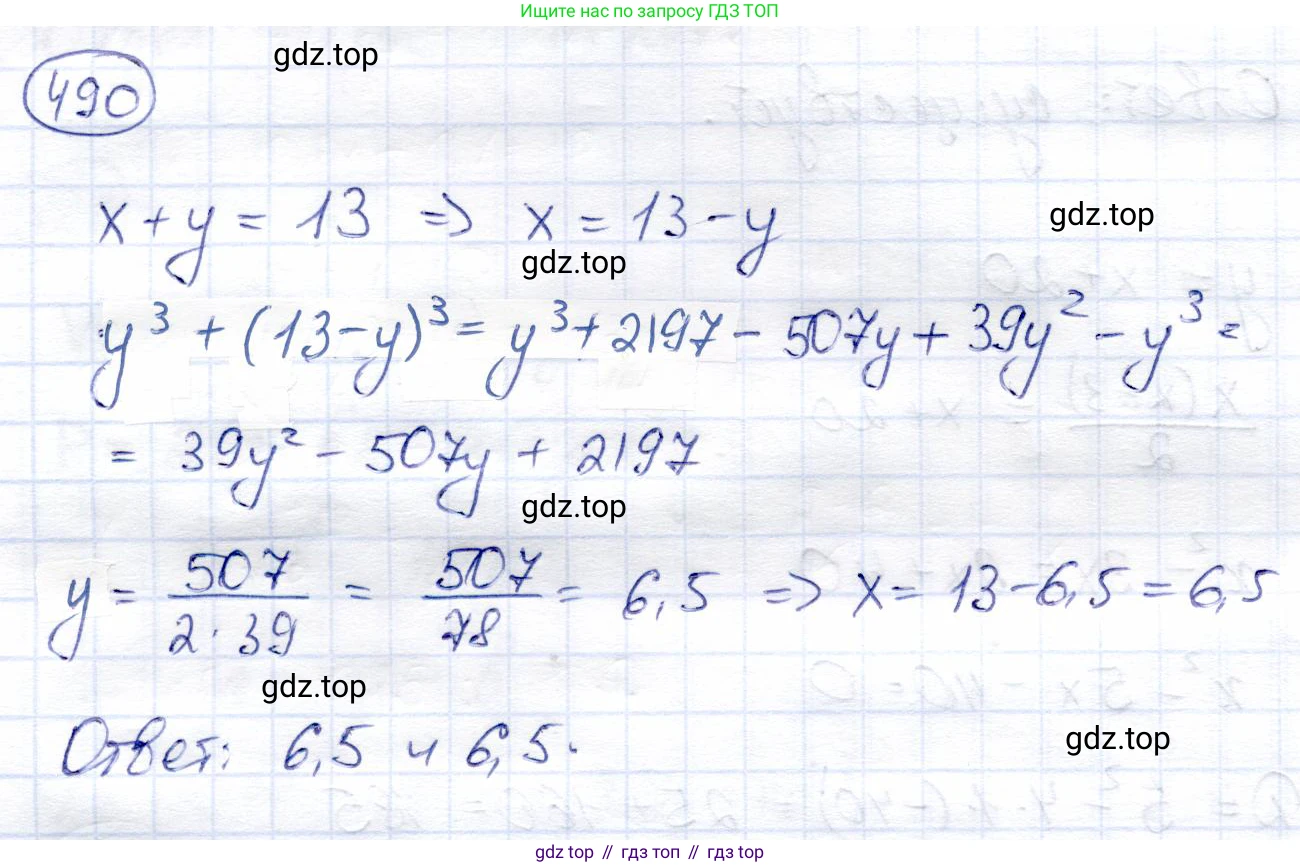 Ищите нас по запросу ГДЗ ТОП
gdz.top
490
x + y = 13 => x = 13 - y
gdz.top
gdz.top
y³ + (13 - y)³ = y³ + 2197 - 507y + 39y² - y³ =
= 39y² - 507y + 2197
gdz.top
y = 507/(2·39) = 507/78 = 6,5 => x = 13 - 6,5 = 6,5
gdz.top
Ответ: 6,5 и 6,5.
gdz.top
gdz top // гдз топ // гдз top